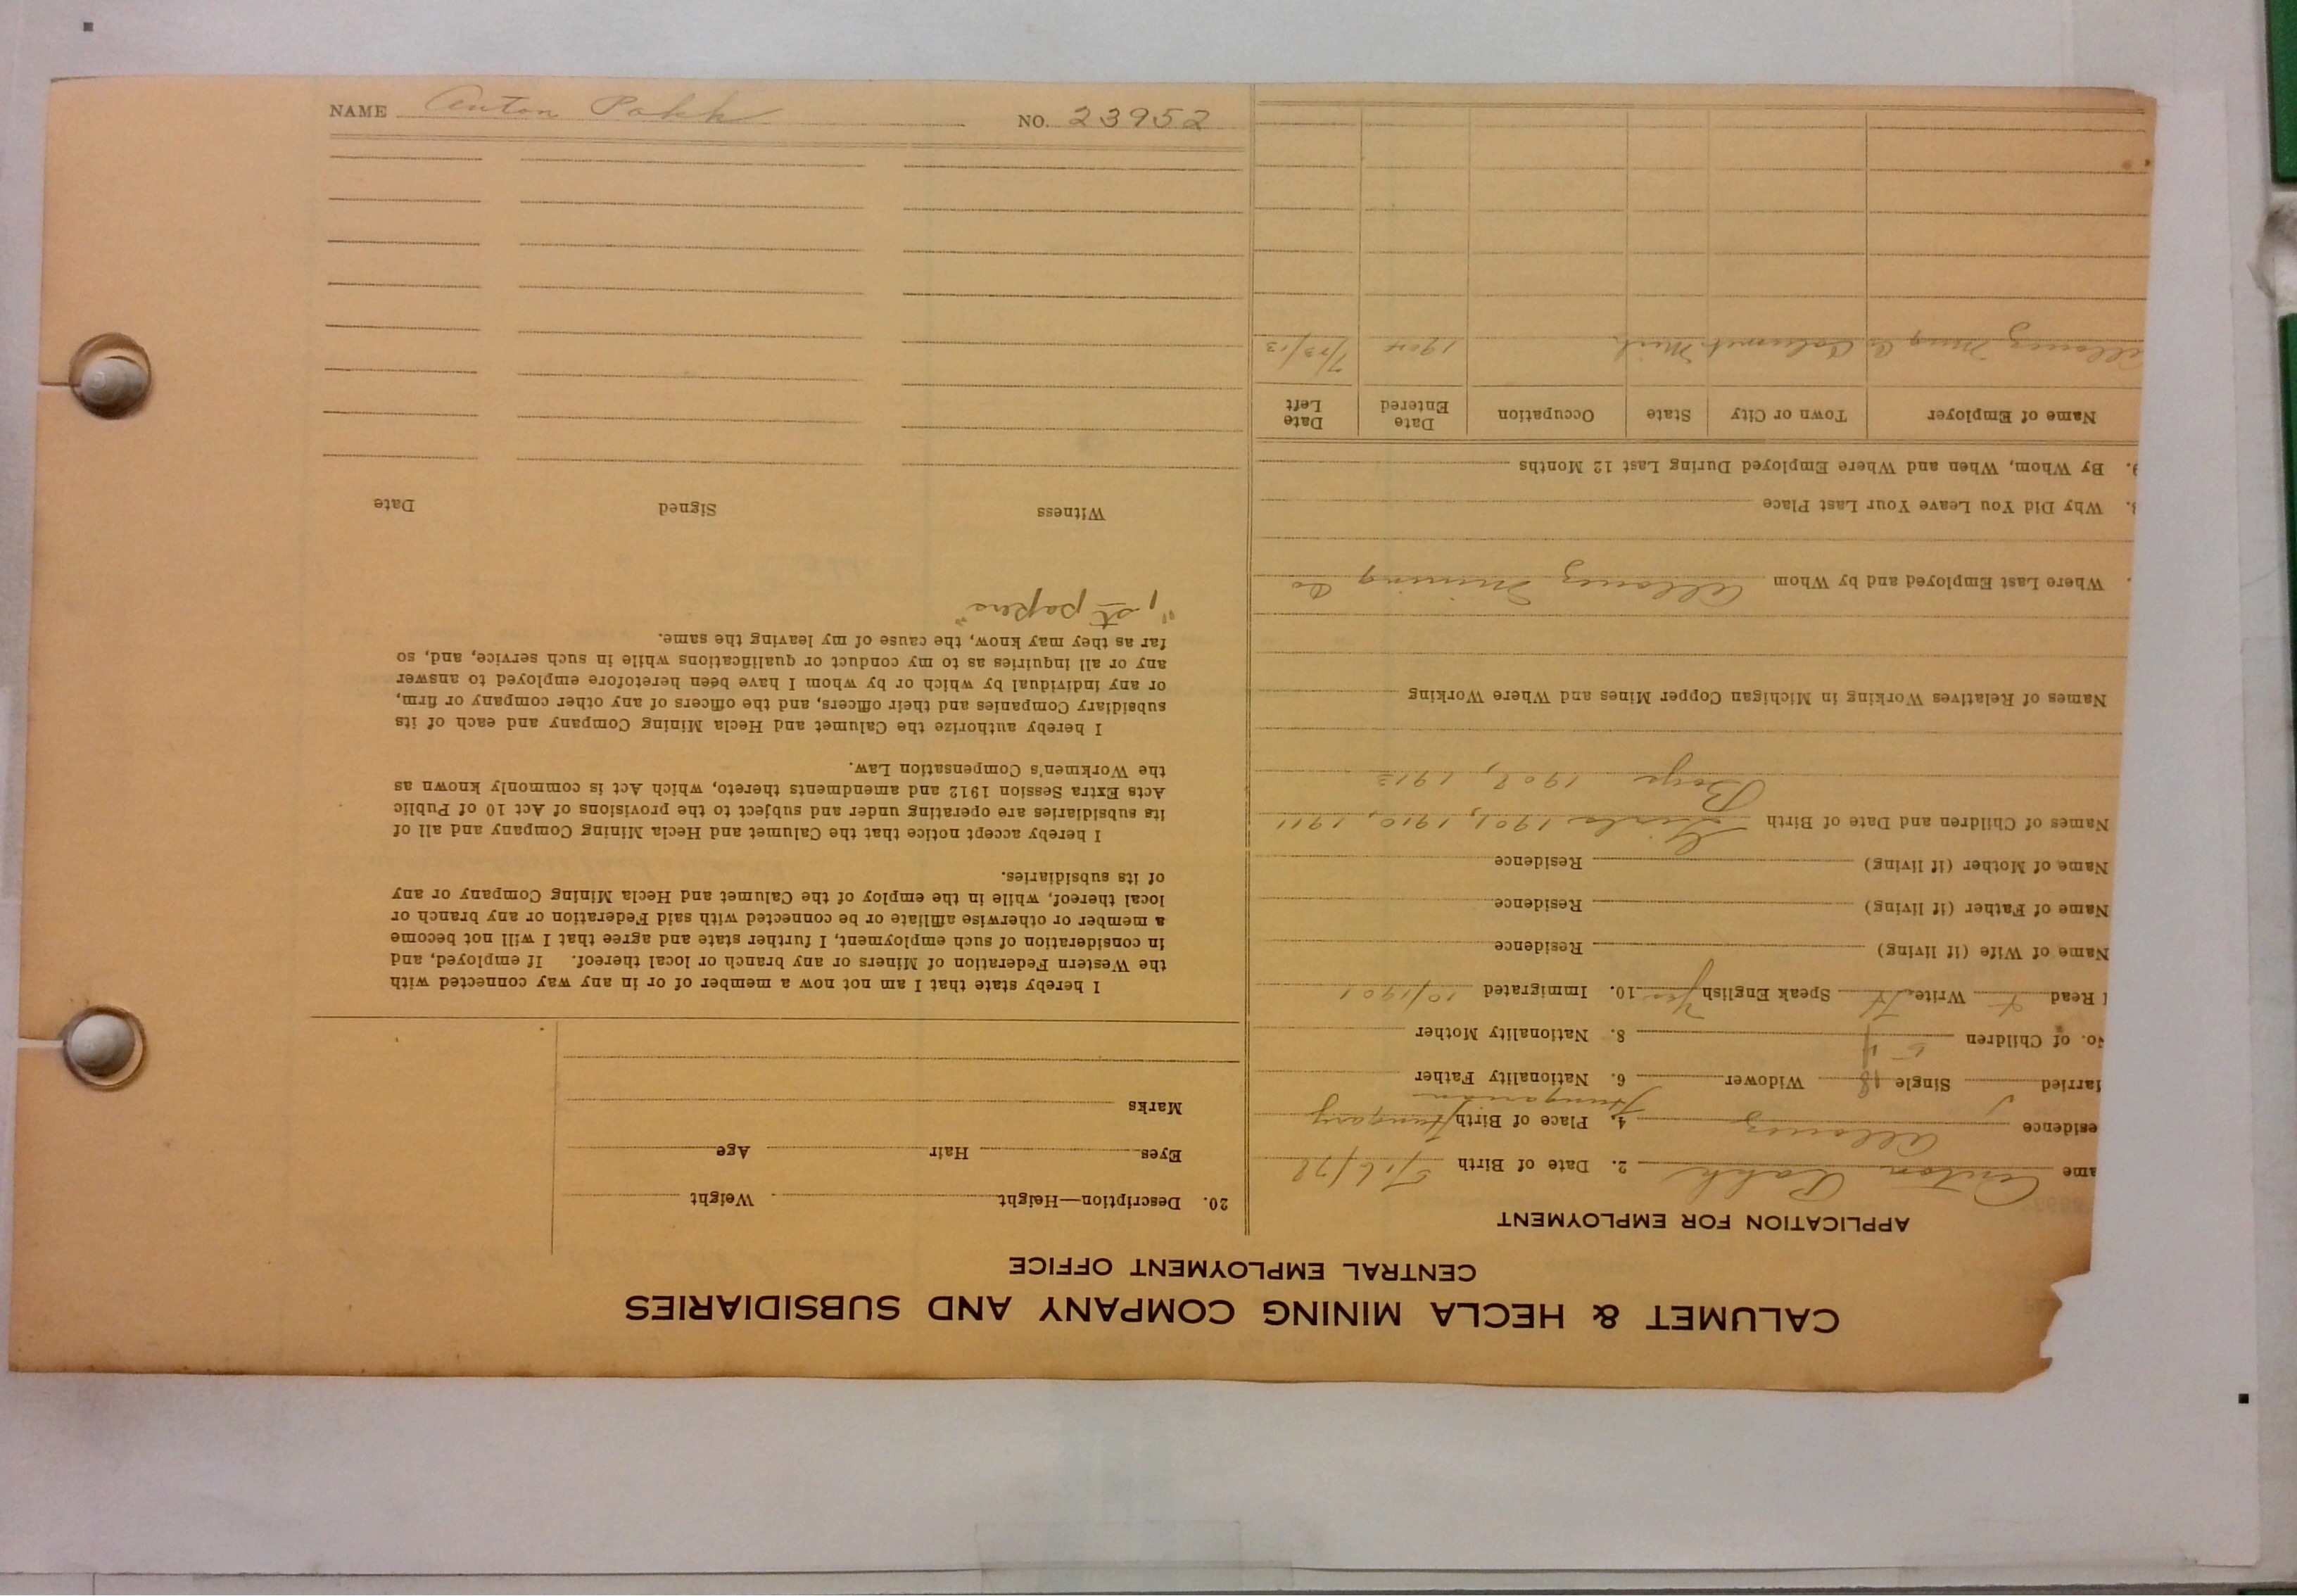 NAME Anton Pakk NO. 23952
CALUMET & HECLA MINING COMPANY AND SUBSIDIARIES
CENTRAL EMPLOYMENT OFFICE
APPLICATION FOR EMPLOYMENT
ame Anton Pakk 2. Date of Birth
esidence Allouez 4. Place of Birth Hungary
Hungarian
arried Single Widower 6. Nationality Father
o. of Children 5 8. Nationality Mother
Read Write Speak English Yes 10. Immigrated 10/1901
Name of Wife (if living) Residence
Name of Father (if living) Residence
Name of Mother (if living) Residence
Names of Children and Date of Birth Girls 1901, 1910, 1911
Boys 1908, 1913
Names of Relatives Working in Michigan Copper Mines and Where Working
Where Last Employed and by Whom Allouez Mining Co
Why Did You Leave Your Last Place
9. By Whom, When and Where Employed During Last 12 Months
Name of Employer Town or City State Occupation Date Entered Date Left
Allouez Mng Co Calumet Mich 1904 7/23/13
20. Description—Height Weight
Eyes Hair Age
Marks
I hereby state that I am not now a member of or in any way connected with
the Western Federation of Miners or any branch or local thereof. If employed, and
in consideration of such employment, I further state and agree that I will not become
a member or otherwise affiliate or be connected with said Federation or any branch or
local thereof, while in the employ of the Calumet and Hecla Mining Company or any
of its subsidiaries.
I hereby accept notice that the Calumet and Hecla Mining Company and all of
its subsidiaries are operating under and subject to the provisions of Act 10 of Public
Acts Extra Session 1912 and amendments thereto, which Act is commonly known as
the Workmen's Compensation Law.
I hereby authorize the Calumet and Hecla Mining Company and each of its
subsidiary Companies and their officers, and the officers of any other company or firm,
or any individual by which or by whom I have been heretofore employed to answer
any or all inquiries as to my conduct or qualifications while in such service, and, so
far as they may know, the cause of my leaving the same.
"1st papers"
Witness Signed Date